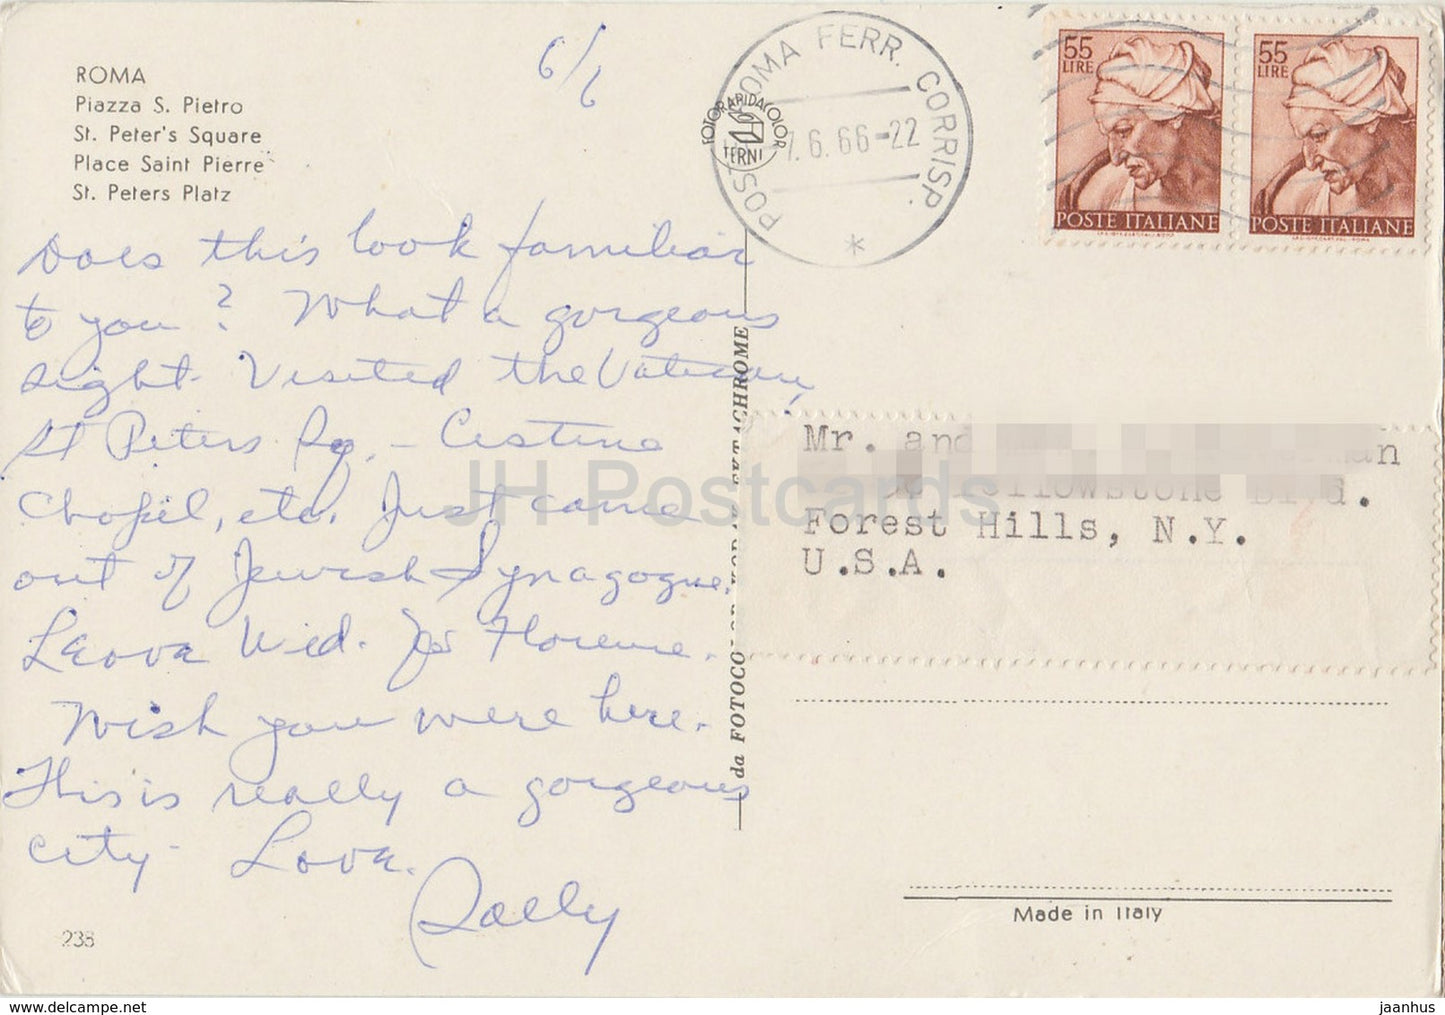 6/6
ROMA
Piazza S. Pietro
St. Peter's Square
Place Saint Pierre
St. Peters Platz
Does this look familiar
to you? What a gorgeous
sight. Visited the Vatican,
St Peters Sq. – Cistine
Chapel, etc. Just came
out of Jewish Synagogue.
Leave Wed. for Florence.
Wish you were here.
This is really a gorgeous
city - Love.
Sally
238
POSTE ROMA FERR. CORRISP.
7.6.66-22
*
FOTORAPIDACOLOR
TERNI
55
LIRE
POSTE ITALIANE
55
LIRE
POSTE ITALIANE
da FOTOCOLOR KODAK EKTACHROME
Mr. and
Yellowstone Blvd.
Forest Hills, N.Y.
U.S.A.
Made in Italy
JH Postcards
www.delcampe.net
jaanhus